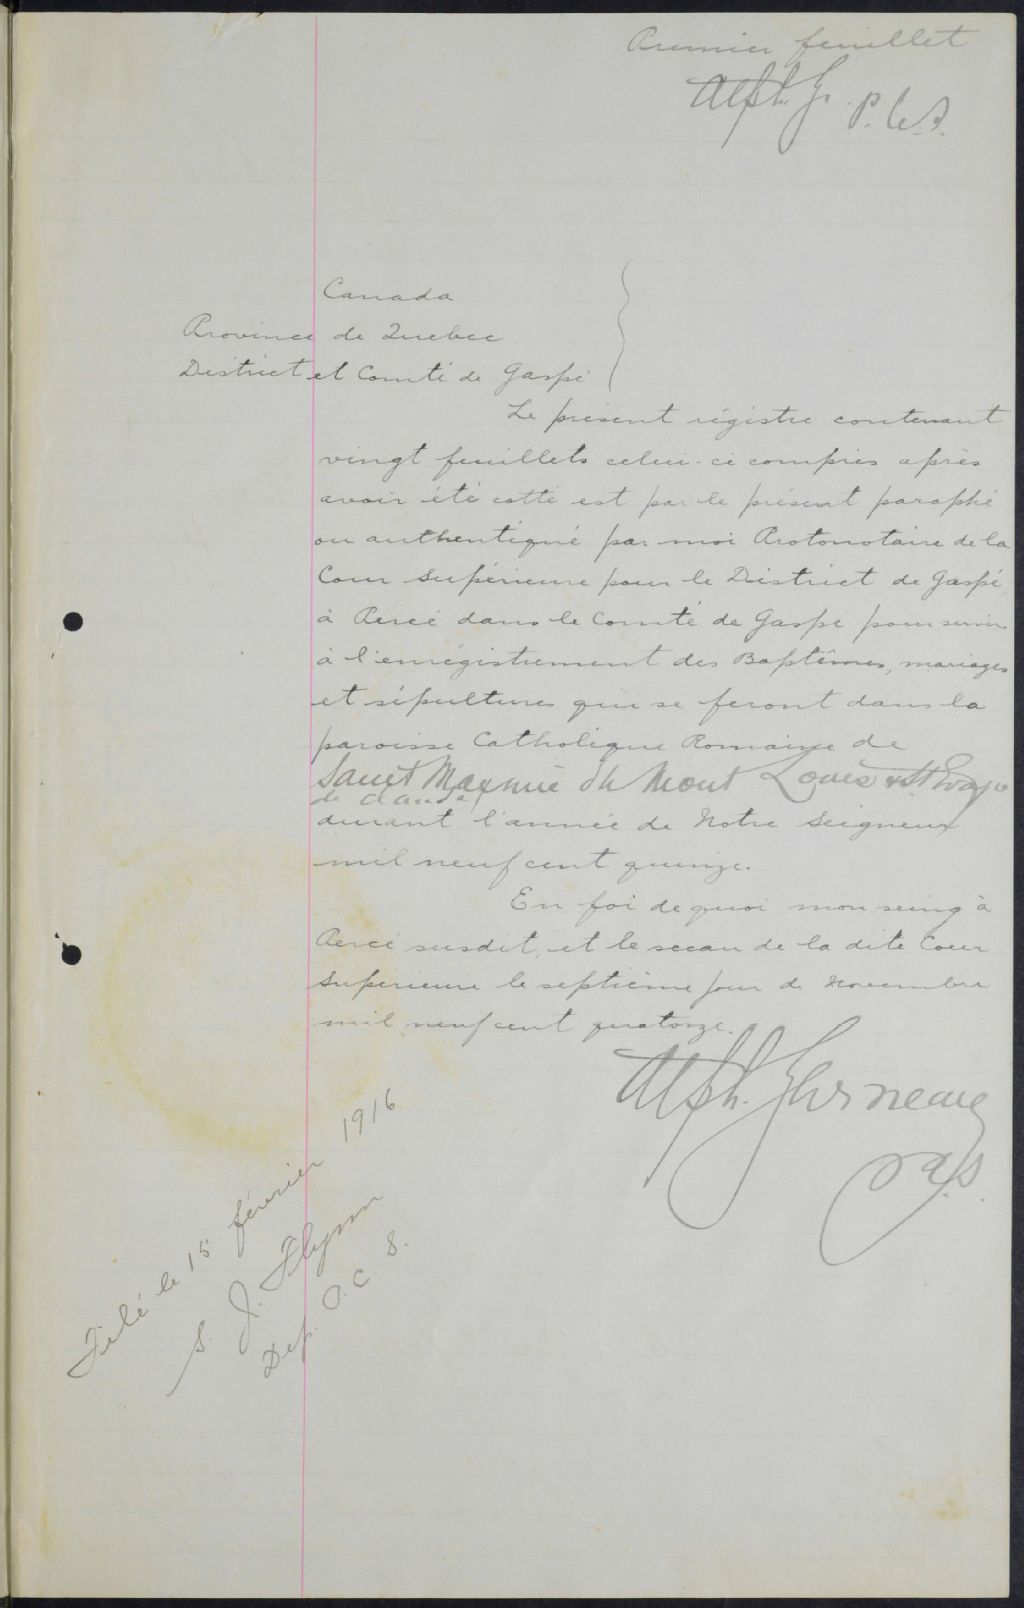 Premier feuillet
Alph. G. P.C.S.
Canada
Province de Quebec
District et Comté de Gaspé
Le présent régistre contenant
vingt feuillets celui-ci compris après
avoir été cotté est par le présent paraphé
ou authentiqué par moi Protonotaire de la
Cour Supérieure pour le District de Gaspé,
à Percé dans le Comté de Gaspé pour servir
à l'enrégistrement des Baptêmes, mariages
et sépultures qui se feront dans la
paroisse Catholique Romaine de
Saint Maxime du Mont Louis & St
de Claude
durant l'année de Notre Seigneur
mil neuf cent quinze.
En foi de quoi mon seing à
Percé susdit, et le sceau de la dite Cour
Supérieure le septième jour de Novembre
mil neuf cent quatorze.
Alph. Garneau
Filé le 15 février 1916
S. J. Flynn
Dep. P.C.S.